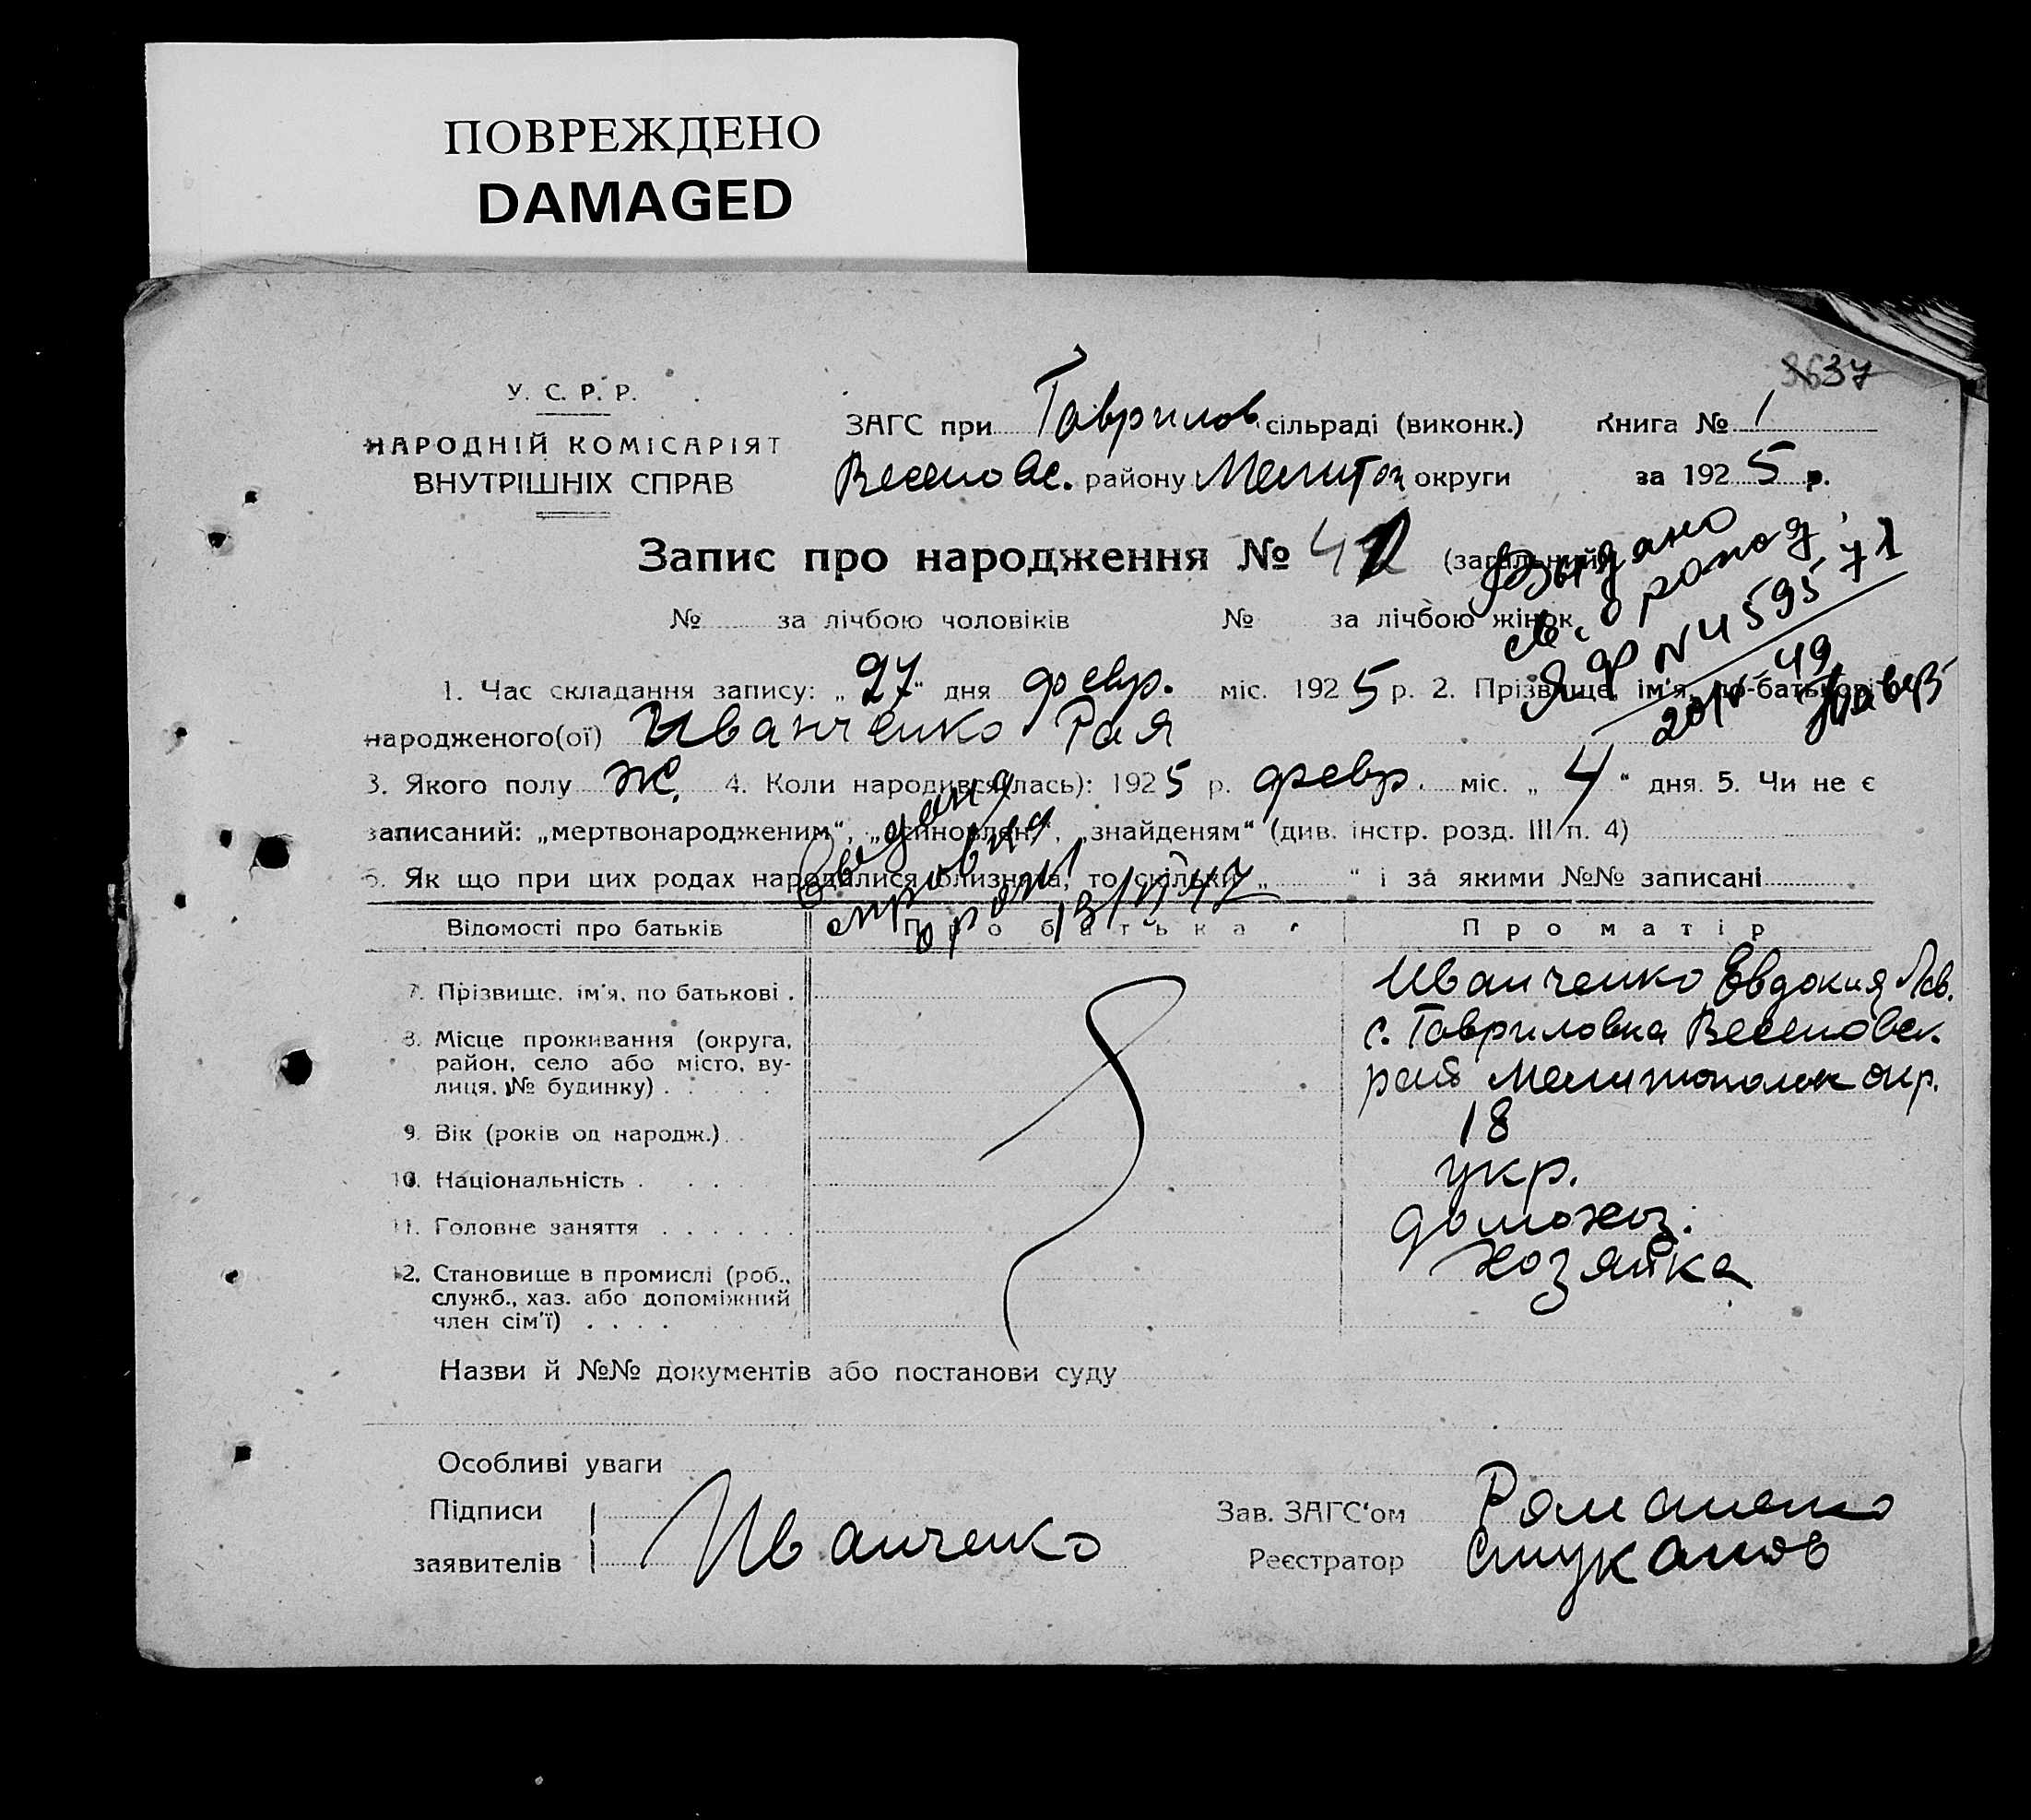 ПОВРЕЖДЕНО
DAMAGED
У. С. Р. Р.
НАРОДНІЙ КОМІСАРІЯТ
ВНУТРІШНІХ СПРАВ
ЗАГС при Гаврилов. сільраді (виконк.)
Веселовс. району Мелитоп округи
3637
Книга № 1
за 1925 р.
Запис про народження № 42 (загальний)
№ за лічбою чоловіків № за лічбою жінок
Выдано
св. о рожд.
ЯФ N 459571
20/V-49
1. Час складання запису: „27“ дня февр. міс. 1925 р. 2. Прізвище, ім'я, по-батькові
народженого(ої) Иванченко Рая
3. Якого полу Ж. 4. Коли народився(лась): 1925 р. февр. міс. „4“ дня. 5. Чи не є
записаний: „мертвонародженим“, „усиновлен.“, „знайденям“ (див. інстр. розд. III п. 4)
6. Як що при цих родах народилися близнята, то скільки „ “ і за якими №№ записані
Выдана
справка
о рожд
Відомості про батьків
Про батька
Про матір
7. Прізвище, ім'я, по батькові .
Иванченко Евдокия Лав.
8. Місце проживання (округа,
район, село або місто, ву-
лиця, № будинку) . .
с. Гавриловка Веселовск.
рай Мелитопольск окр.
9. Вік (років од народж.)
18
10. Національність . . .
укр.
11. Головне заняття . . . . . .
домохоз.
12. Становище в промислі (роб.,
служб., хаз. або допоміжний
член сім'ї) . . . .
хозяйка
Назви й №№ документів або постанови суду
Особливі уваги
Підписи
заявителів
Иванченко
Зав. ЗАГС'ом Романенко
Реєстратор Стуканов